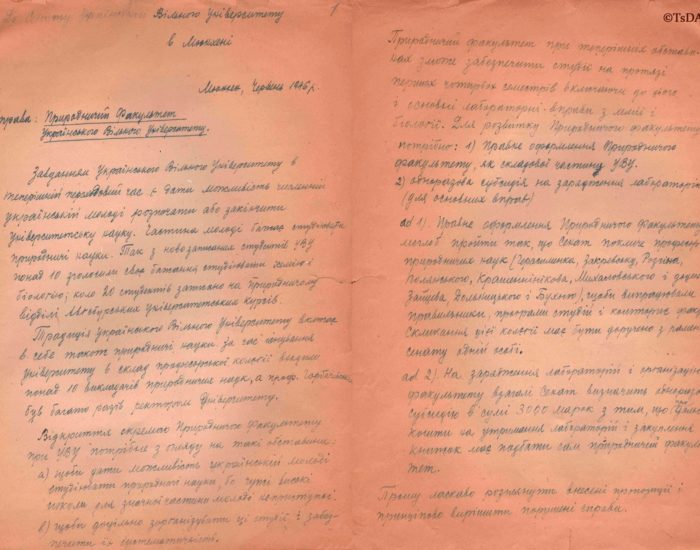 До Сенату Українського Вільного Університету
в Мюнхені
1
Мюнхен, Червень 1946 р.
Справа: Природничий Факультет
Українського Вільного Університету.
Завданням Українського Вільного Університету в
теперішній час є дати можливість численній
українській молоді розпочати або закінчити
університетську науку. Частина молоді бажає студіювати
природничі науки. Так з новозаписаних студентів УВУ
понад 10 зголосили своє бажання студіювати хемію і
біологію; коло 20 студентів записано на природничому
відділі Авгсбурських університетських курсів.
Традиція Українського Вільного Університету включає
в себе також природничі науки. За час існування
Університету в склад професорської колегії входило
понад 10 викладачів природничих наук, а проф. Горбачевський
був багато разів ректором Університету.
Відкриття окремого Природничого Факультету
при УВУ потрібне з огляду на такі обставини:
а) щоби дати можливість українській молоді
студіювати природничі науки, бо чужі високі
школи для значної частини молоді недоступні.
в) щоби доцільно зорганізувати ці студії і забез-
печити їх систематичність.
©TsDA
Природничий факультет при теперішніх обстави-
нах зможе забезпечити студії на протязі
перших чотирьох семестрів включаючи до цього
і основні лабораторні вправи з хемії і
біології. Для розвитку Природничого факультету
потрібно: 1) Правне оформлення Природничого
факультету, як складової частини УВУ.
2) одноразова субсидія на зарядження лабораторій
(для основних вправ)
ad 1). Правне оформлення Природничого Факультету
могло б пройти так, що Сенат покличе професорів
природничих наук (Герасименка, Закревську, Розгіна,
Полянського, Крашеніннікова, Михаловського і доцент
Зайцева, Дольницького і Бухент), щоби випрацювали
правильники, програми студій і кошторис факу
Скликання цієї колегії має бути доручено з рамен
сенату одній особі.
ad 2). На зарядження лабораторій і організацію
факультету взагалі Сенат визначить одноразову
субсидію в сумі 3000 марок з тим, що
кошти на утримання лабораторій і закуплення
книжок має подбати сам природничий факуль
тет.
Прошу ласкаво розглянути внесені пропозиції і
принципово вирішити порушені справи.